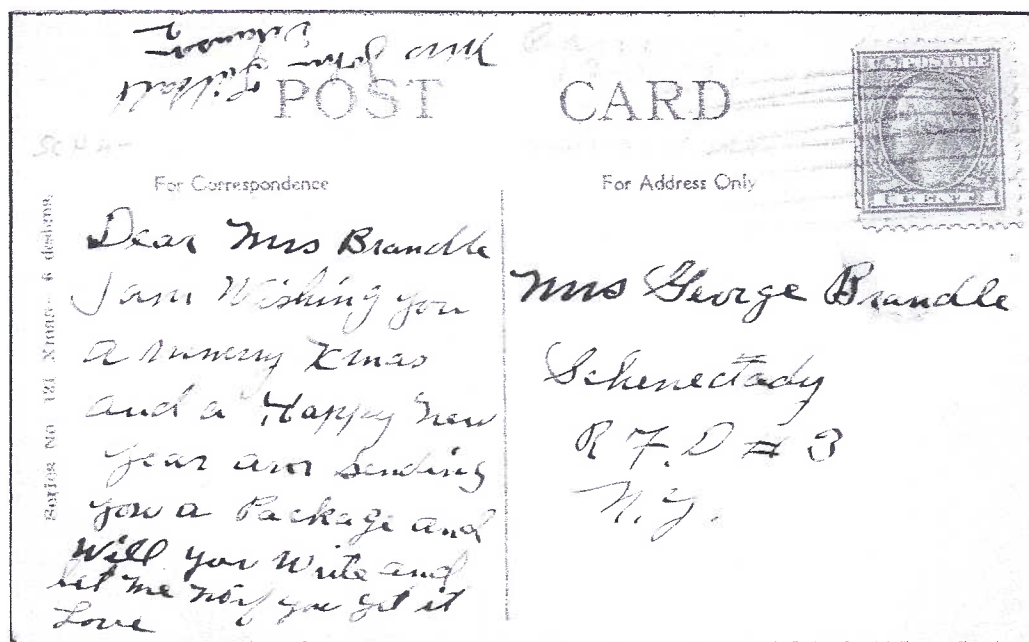 Mrs John
POST CARD
For Correspondence
For Address Only
U.S. POSTAGE
1 CENT 1
Series No 121 Xmas- 6 designs.
Dear Mrs Brandle
I am Wishing you
a merry Xmas
and a Happy New
year am sending
you a Package and
Will you Write and
let me no if you get it
Love
Mrs George Brandle
Schenectady
R F. D # 3
N. Y.